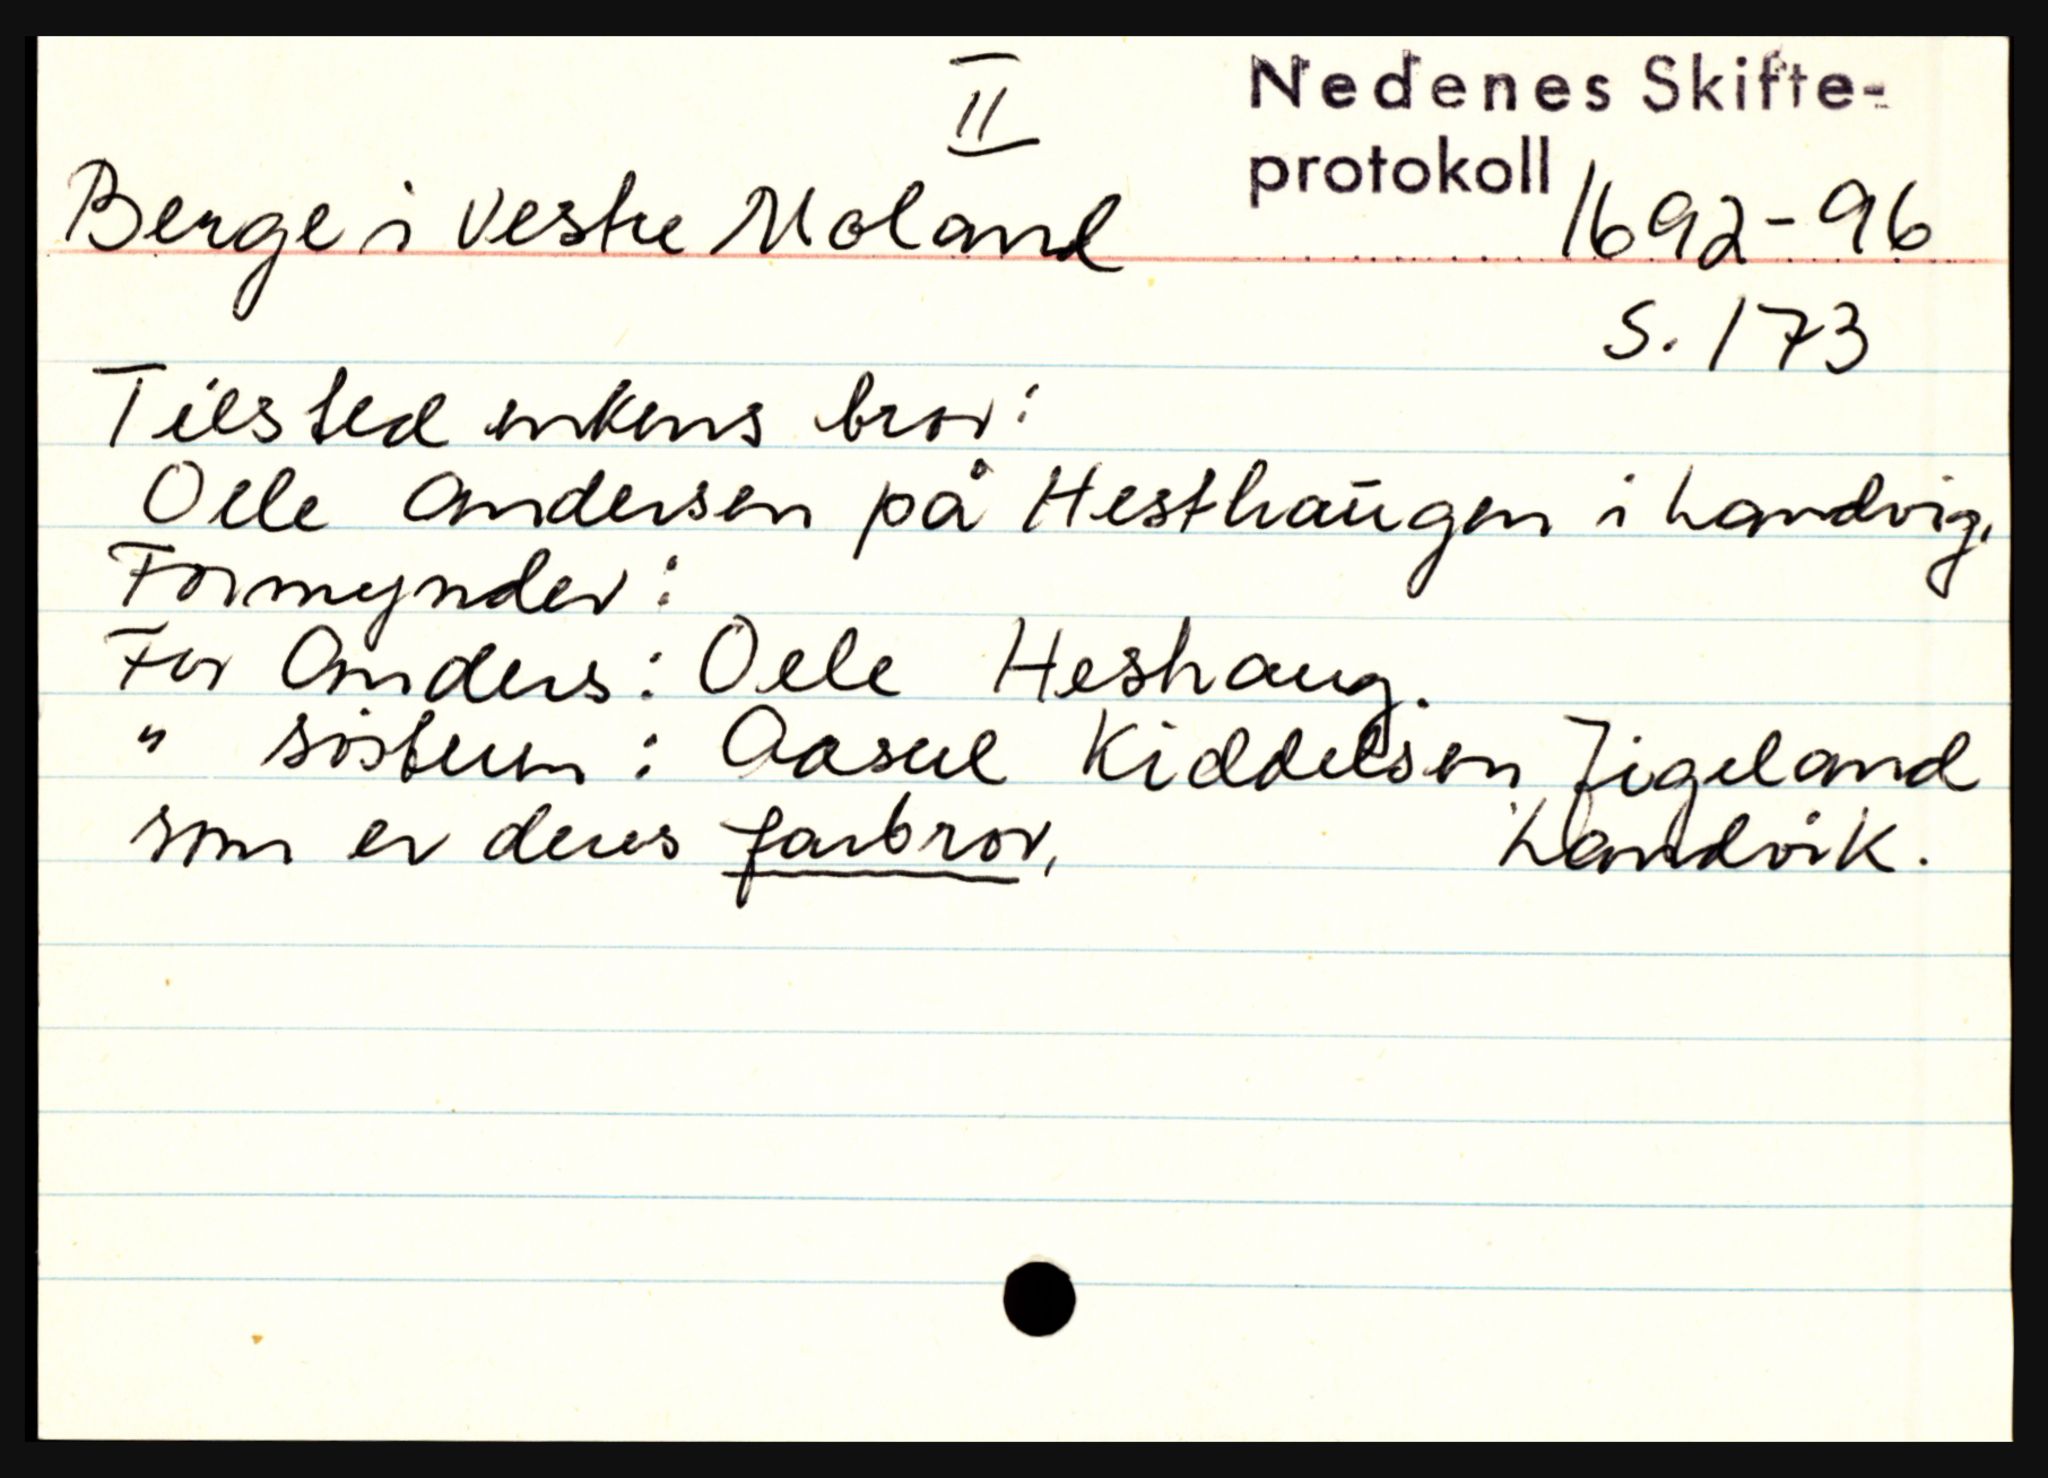 II
Nedenes Skifte-
protokoll 1692-96
Berge i Vestre Moland
S. 173
Tilsted enkens bror:
Oele Andersen på Hesthaŭgen i Landvig.
Formynder:
For Anders: Oele Heshaug.
" søstren: Aasul Kiddelsen Tigeland
som er deres farbror, Landvik.